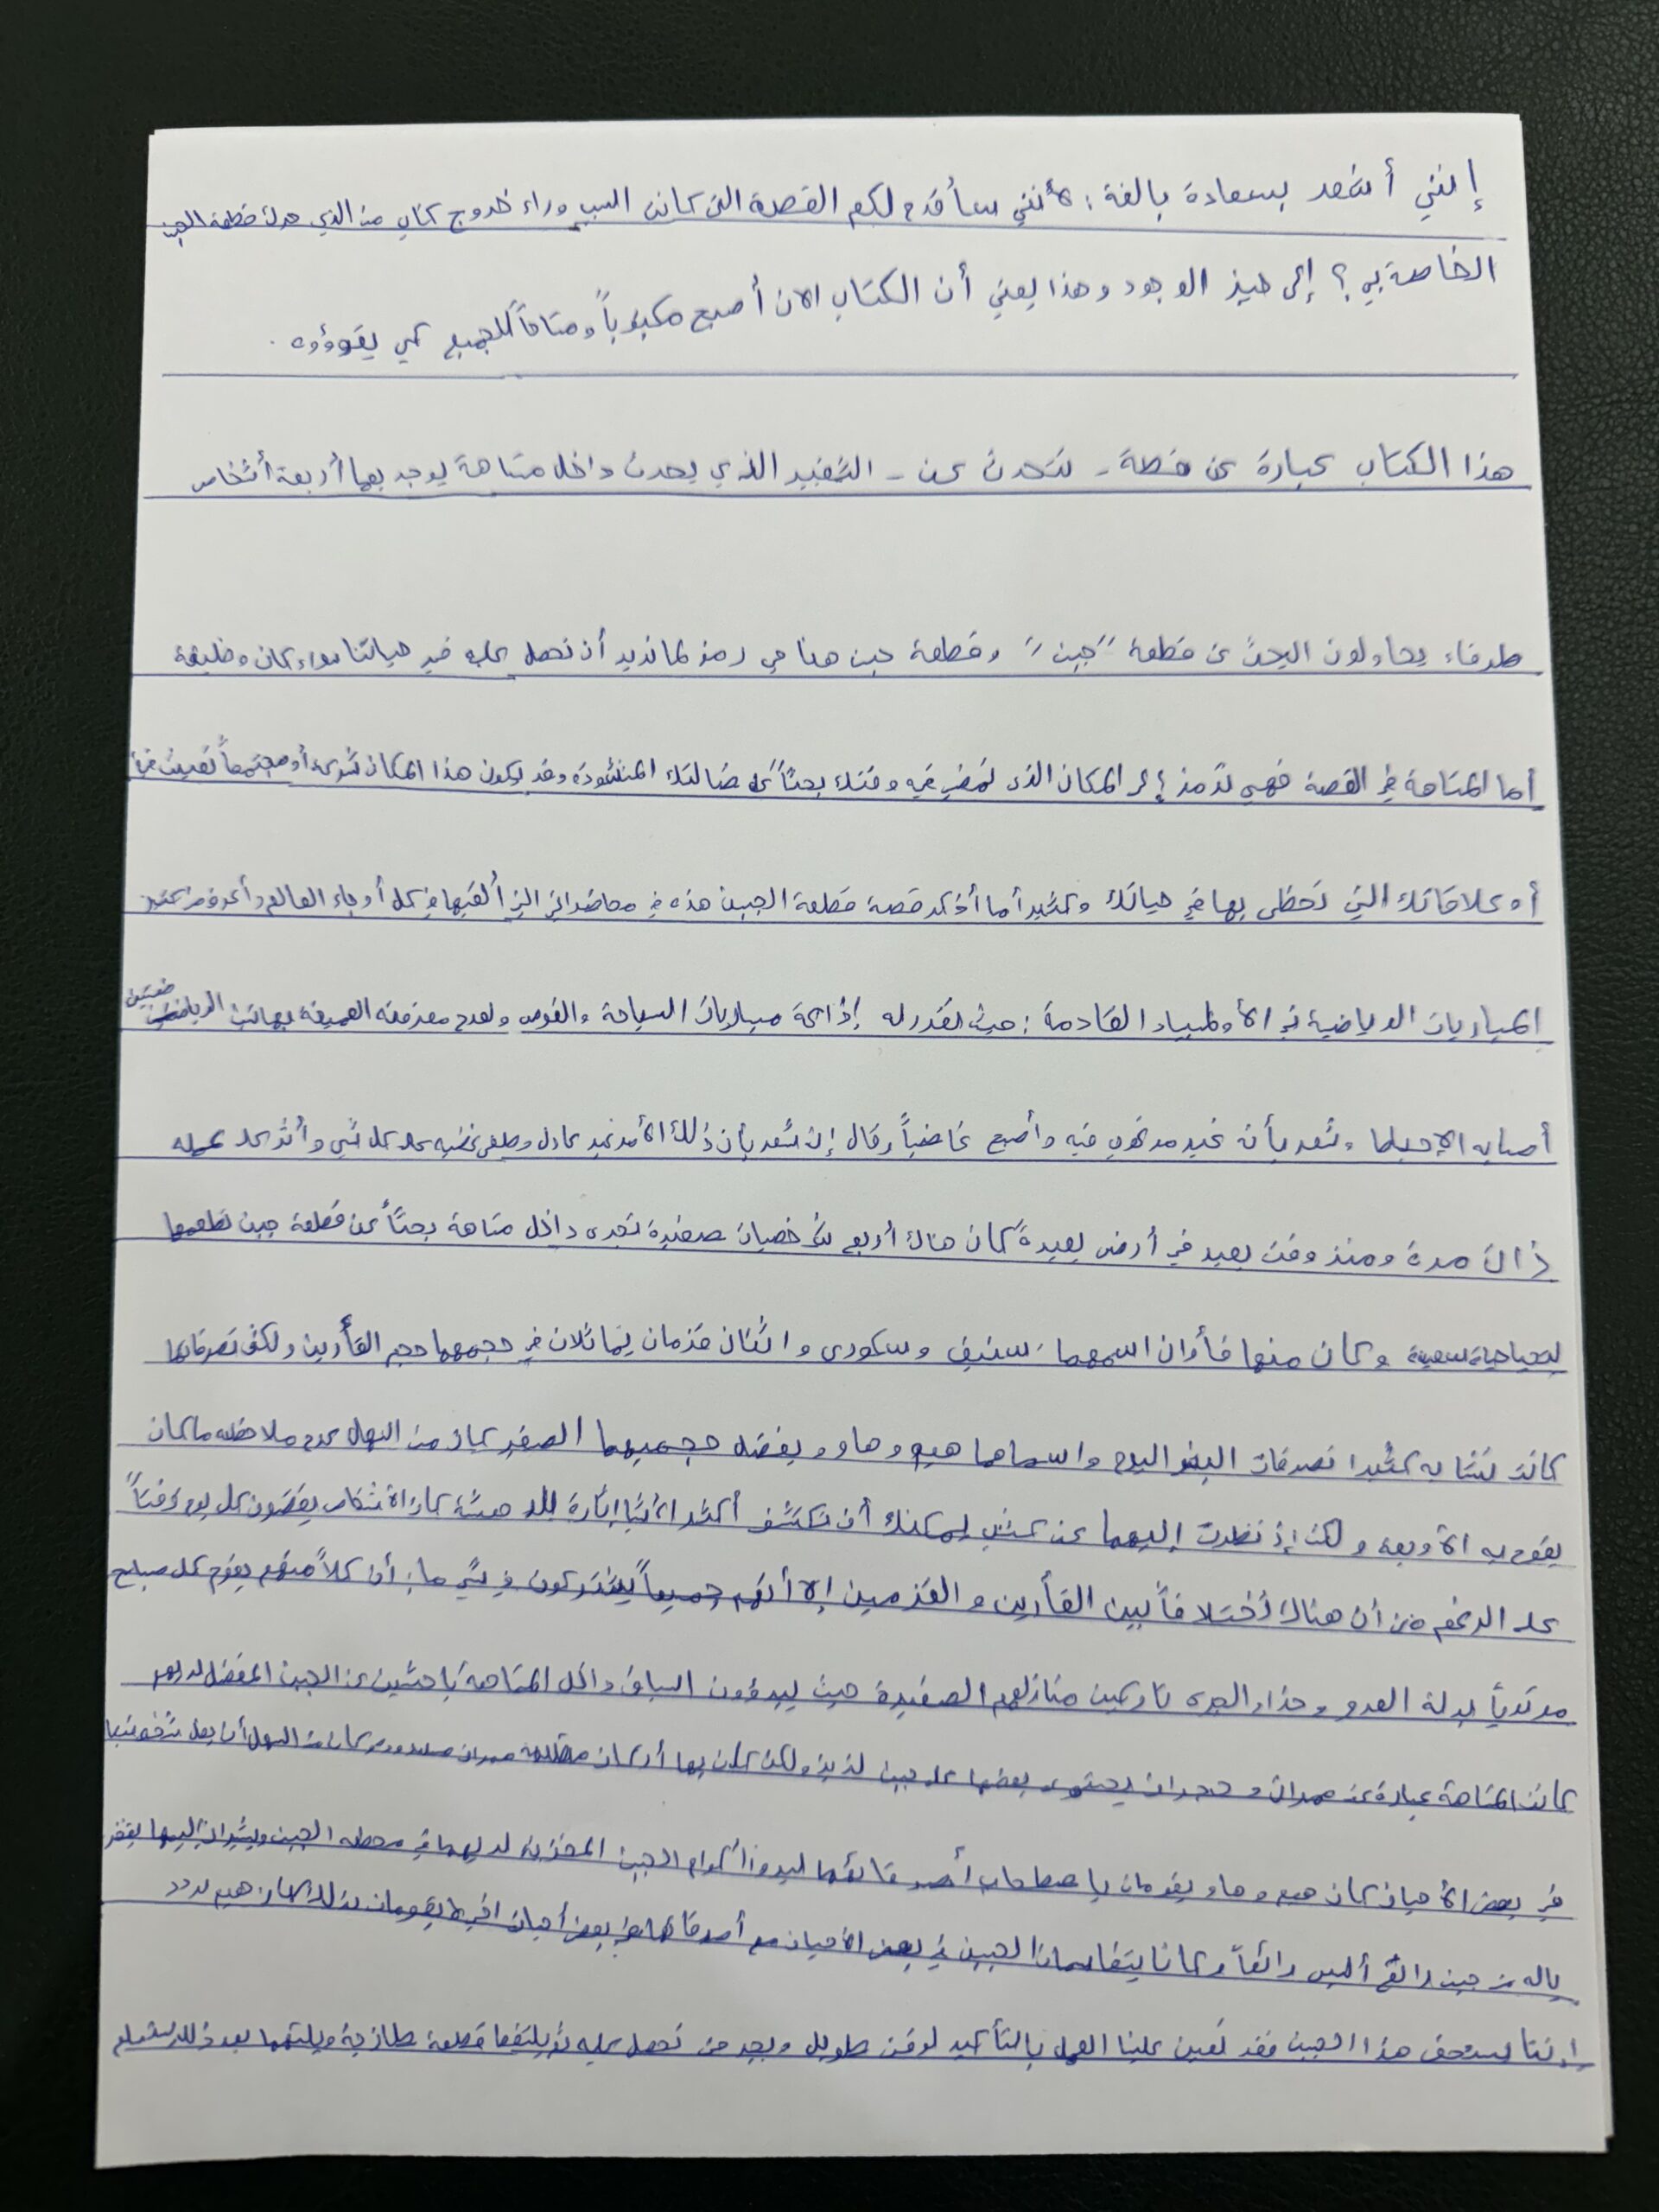 إنني أشعر بسعادة بالغة؛ لأنني سأقدم لكم القصة التي كانت السبب وراء خروج كتاب من الذي حرك قطعة الجبن
الخاصة بي؟ إلى حيز الوجود وهذا يعني أن الكتاب الان أصبح مكتوباً ومتاحاً للجميع كي يقرؤوه.
هذا الكتاب عبارة عن قصة - تتحدث عن - التغيير الذي يحدث داخل متاهة يوجد بها أربعة أشخاص
ظرفاء يحاولون البحث عن قطعة "جبن" وقطعة جبن هنا هي رمز لما نريد أن نحصل عليه في حياتنا سواء كان وظيفة
أما المتاهة في القصة فهي ترمز إلى المكان الذي تمضي فيه وقتك بحثاً عن ضالتك المنشودة وقد يكون هذا المكان شركة أو مجتمعاً تعيش فيه
أو علاقاتك التي تحظى بها في حياتك وكثيرأ ما أذكر قصة قطعة الجبن هذه في محاضراتي التي ألقيها في كل أرجاء العالم وأعرف من
المباريات الرياضية في الأولمبياد القادمة؛ حيث تقرر له إذاعة مباريات السباحة والغوص ولعدم معرفته العميقة بهاتين الرياضتين
أصابه الإحباط وشعر بأنه غير مرغوب فيه وأصبح غاضباً وقال إنه شعر بأن ذلك الأمر غير عادل وطغى غضبه على كل شي وأثر على عمله
ذات مرة ومنذ وقت بعيد في أرض بعيدة كان هناك أربع شخصيات صغيرة تجرى داخل متاهة بحثاً عن قطعة جبن تطعمها
لتحيا حياة سعيدة وكان منها فأران اسمهما سنيف وسكورى واثنان قزمان يتماثلان في حجمهما حجم الفأرين ولكن تصرفاتهما
كانت تتشابه كثيرا تصرفات البشر اليوم واسماهما هيم وهاو وبفضل حجميهما الصغير كان من السهل عدم ملاحظه ما كان
يقوم به الأربعة ولكن إذ نظرت إليهما عن كثب يمكنك أن تكتشف أكثر الأشيا إثارة للدهشة كان الأشخاص يقضون كل يوم وقتاً
على الرغم من أن هناك أختلافاً بين الفأرين والقزمين إلا أنهم جميعاً يشتركون في شي ما: أن كلاً منهم يقوم كل صباح
مرتدياً بدلة العدو وحذاء الجرى تاركين منازلهم الصغيرة حيث يبدؤون السباق داخل المتاهة باحثين عن الجبن المفضل لديهم
كانت المتاهة عبارة عن ممرات وحجرات يحتوى بعضها على جبن لذيذ ولكن كان بها أركان مظلمة وممرات مسدودة وكان من السهل أن يضل شخص فيها
في بعض الأحيان كان هيم وهاو يقومان باصطحاب أصدقائهما ليروا أكوام الجبن المخزون لديهما في محطه الجبن ويشيران إليها بفخر
ياله من جبن رائع أليس رائعاً وكانا يتقاسمان الجبن في بعض الأحيان مع أصدقائهما وفي بعض أحيان اخرى لا يقومان بذلك كان هيم يردد
إننا نستحق هذا الجبن فقد تعين علينا العمل بالتأكيد لوقت طويل وبجد حتى نحصل عليه ثم يلتقط قطعة طازجة ويلتهمها بعد ذلك يستسلم